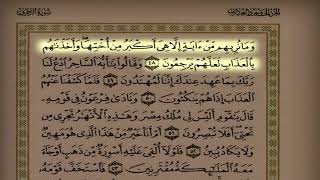 سورة الزخرف
وَمَا نُرِيهِم مِّنْ ءَايَةٍ إِلَّا هِيَ أَكْبَرُ مِنْ أُخْتِهَا وَأَخَذْنَاهُم
بِالْعَذَابِ لَعَلَّهُمْ يَرْجِعُونَ ٤٨ وَقَالُوا يَا أَيُّهَ السَّاحِرُ ادْعُ لَنَا
رَبَّكَ بِمَا عَهِدَ عِندَكَ إِنَّنَا لَمُهْتَدُونَ ٤٩ فَلَمَّا كَشَفْنَا عَنْهُمُ
الْعَذَابَ إِذَا هُمْ يَنكُثُونَ ٥٠ وَنَادَىٰ فِرْعَوْنُ فِي قَوْمِهِ
قَالَ يَا قَوْمِ أَلَيْسَ لِي مُلْكُ مِصْرَ وَهَٰذِهِ الْأَنْهَارُ تَجْرِي مِن
تَحْتِي أَفَلَا تُبْصِرُونَ ٥١ أَمْ أَنَا خَيْرٌ مِّنْ هَٰذَا الَّذِي هُوَ مَهِينٌ
وَلَا يَكَادُ يُبِينُ ٥٢ فَلَوْلَا أُلْقِيَ عَلَيْهِ أَسْوِرَةٌ مِّن ذَهَبٍ أَوْ جَاءَ
مَعَهُ الْمَلَائِكَةُ مُقْتَرِنِينَ ٥٣ فَاسْتَخَفَّ قَوْمَهُ